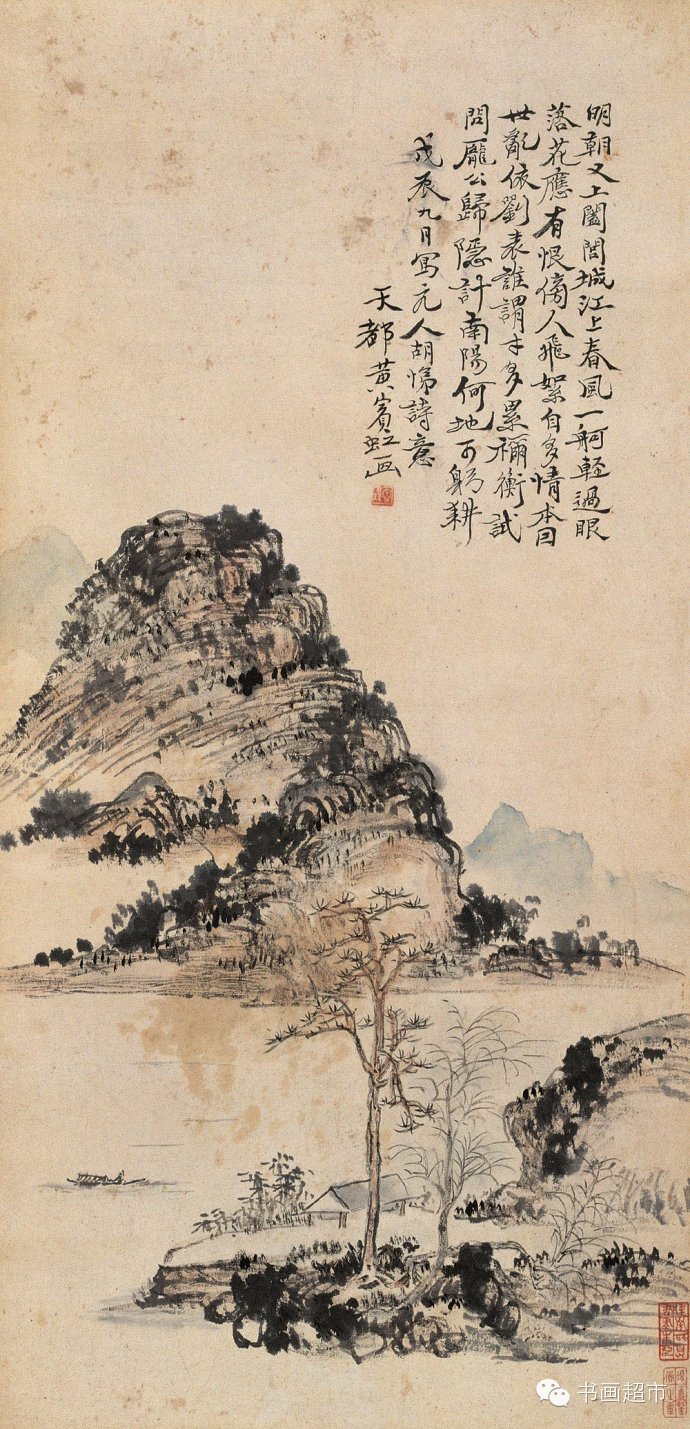 明朝又上闔閭城江上春風一舸輕過眼
落花應有恨傍人飛絮自多情本囙
世亂依劉表誰謂才多累禰衡試
問龐公歸隱計南陽何地可躬耕
戊辰九月寫元人胡悌詩意
天都黃賓虹画
书画超市